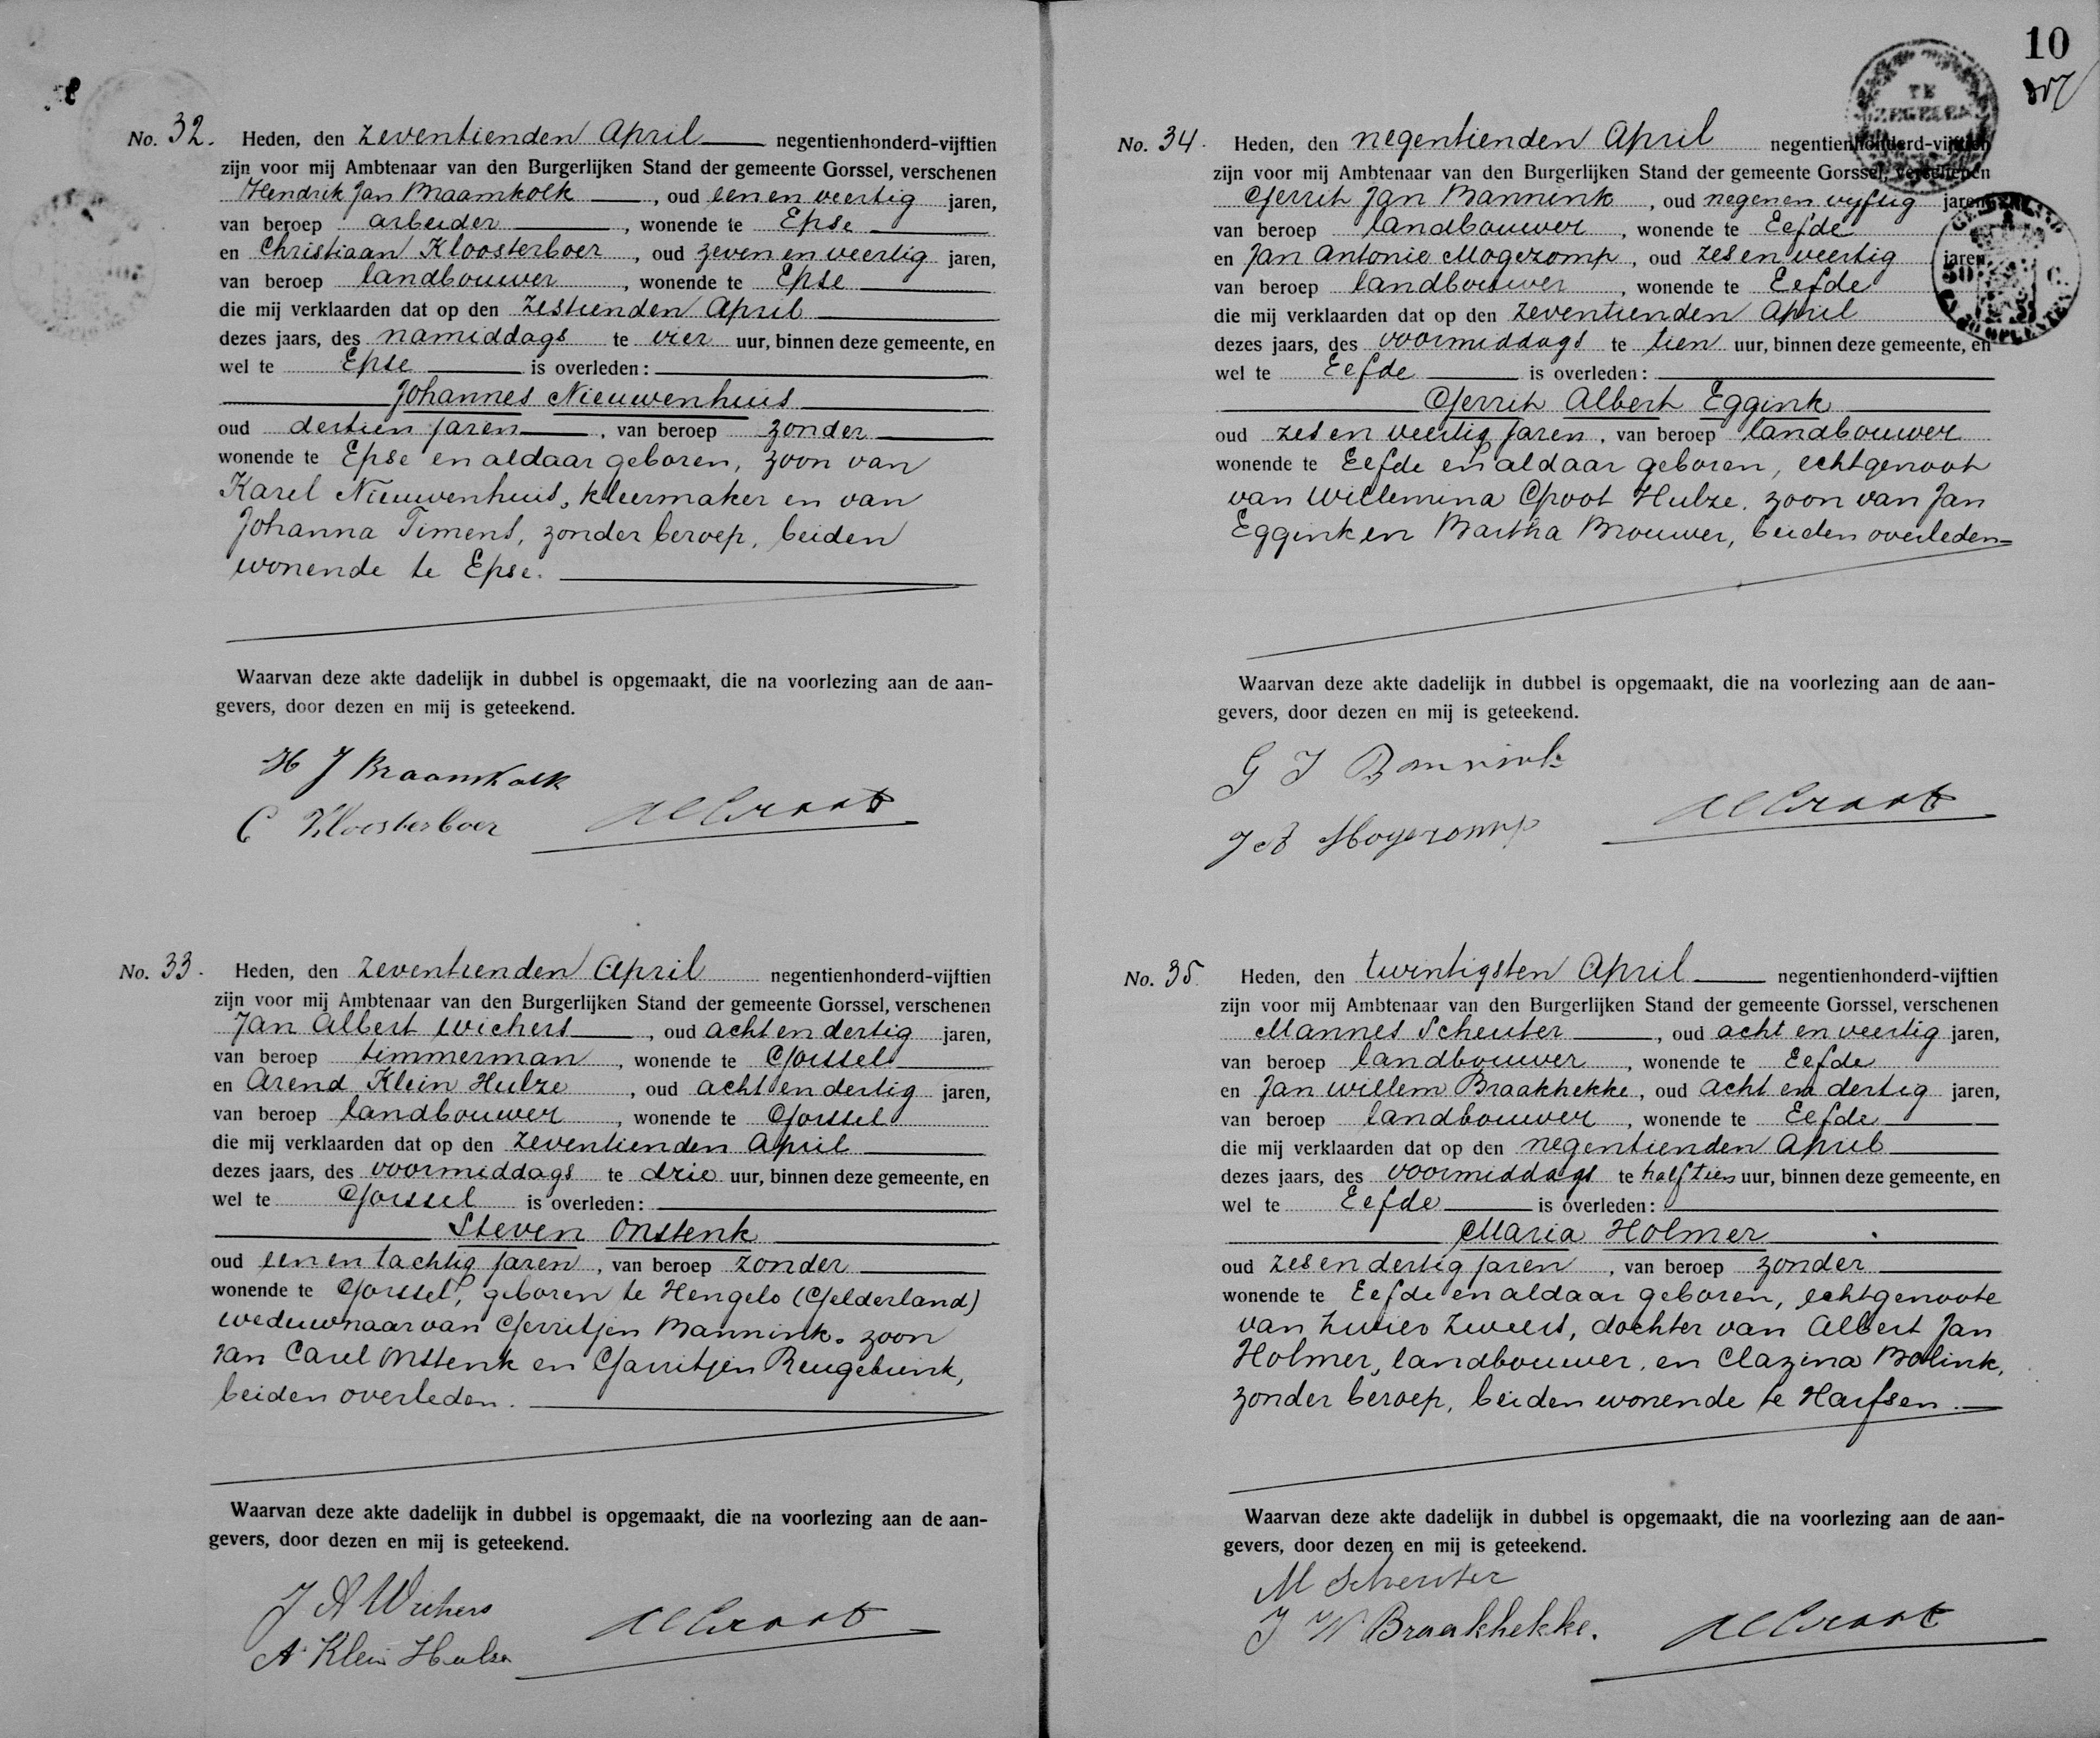 No. 32. Heden, den zeventienden April negentienhonderd-vijftien
zijn voor mij Ambtenaar van den Burgerlijken Stand der gemeente Gorssel, verschenen
Hendrik Jan Braamkolk, oud een en veertig jaren,
van beroep arbeider, wonende te Epse
en Christiaan Kloosterboer, oud zeven en veertig jaren,
van beroep landbouwer, wonende te Epse
die mij verklaarden dat op den zestienden April
dezes jaars, des namiddags te vier uur, binnen deze gemeente, en
wel te Epse is overleden:
Johannes Nieuwenhuis
oud dertien jaren, van beroep zonder
wonende te Epse en aldaar geboren, zoon van
Karel Nieuwenhuis, kleermaker en van
Johanna Timens, zonder beroep, beiden
wonende te Epse.
Waarvan deze akte dadelijk in dubbel is opgemaakt, die na voorlezing aan de aan-
gevers, door dezen en mij is geteekend.
H J Braamkolk
C Kloosterboer
No. 33. Heden, den zeventienden April negentienhonderd-vijftien
zijn voor mij Ambtenaar van den Burgerlijken Stand der gemeente Gorssel, verschenen
Jan Albert Wichers, oud acht en dertig jaren,
van beroep timmerman, wonende te Gorssel
en Arend Klein Hulze, oud acht en dertig jaren,
van beroep landbouwer, wonende te Gorssel
die mij verklaarden dat op den zeventienden April
dezes jaars, des voormiddags te drie uur, binnen deze gemeente, en
wel te Gorssel is overleden:
Steven Onstenk
oud een en tachtig jaren, van beroep zonder
wonende te Gorssel, geboren te Hengelo (Gelderland)
weduwnaar van Gerritjen Bannink. zoon
van Carel Onstenk en Garritjen Reugebrink,
beiden overleden.
Waarvan deze akte dadelijk in dubbel is opgemaakt, die na voorlezing aan de aan-
gevers, door dezen en mij is geteekend.
J A Wichers
A Klein Hulze
10
No. 34. Heden, den negentienden April negentienhonderd-vijftien
zijn voor mij Ambtenaar van den Burgerlijken Stand der gemeente Gorssel, verschenen
Gerrit Jan Bannink, oud negen en vijftig jaren
van beroep landbouwer, wonende te Eefde
en Jan Antonie Mogezomp, oud zes en veertig jaren
van beroep landbouwer, wonende te Eefde
die mij verklaarden dat op den zeventienden April
dezes jaars, des voormiddags te tien uur, binnen deze gemeente, en
wel te Eefde is overleden:
Gerrit Albert Eggink
oud zes en veertig jaren, van beroep landbouwer
wonende te Eefde en aldaar geboren, echtgenoot
van Willemina Groot Hulze. zoon van Jan
Eggink en Bartha Brouwer, beiden overleden
Waarvan deze akte dadelijk in dubbel is opgemaakt, die na voorlezing aan de aan-
gevers, door dezen en mij is geteekend.
G J Bannink
J A Mogezomp
No. 35. Heden, den twintigsten April negentienhonderd-vijftien
zijn voor mij Ambtenaar van den Burgerlijken Stand der gemeente Gorssel, verschenen
Mannes Scheuter, oud acht en veertig jaren,
van beroep landbouwer, wonende te Eefde
en Jan Willem Braakhekke, oud acht en dertig jaren,
van beroep landbouwer, wonende te Eefde
die mij verklaarden dat op den negentienden April
dezes jaars, des voormiddags te half tien uur, binnen deze gemeente, en
wel te Eefde is overleden:
Maria Holmer
oud zes en dertig jaren, van beroep zonder
wonende te Eefde en aldaar geboren, echtgenoote
van Zwier Zweers, dochter van Albert Jan
Holmer, landbouwer, en Clazina Bolink,
zonder beroep, beiden wonende te Harfsen.
Waarvan deze akte dadelijk in dubbel is opgemaakt, die na voorlezing aan de aan-
gevers, door dezen en mij is geteekend.
M Scheuter
J W Braakhekke.